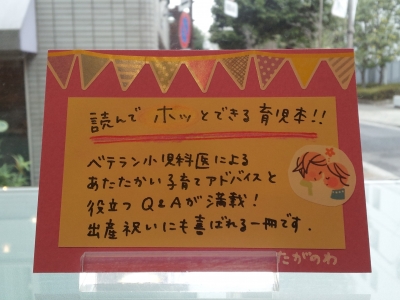 読んで ホッとできる育児本!!
ベテラン小児科医による
あたたかい子育てアドバイスと
役立つ Q&Aが満載!
出産祝いにも喜ばれる一冊です.
たがのわ